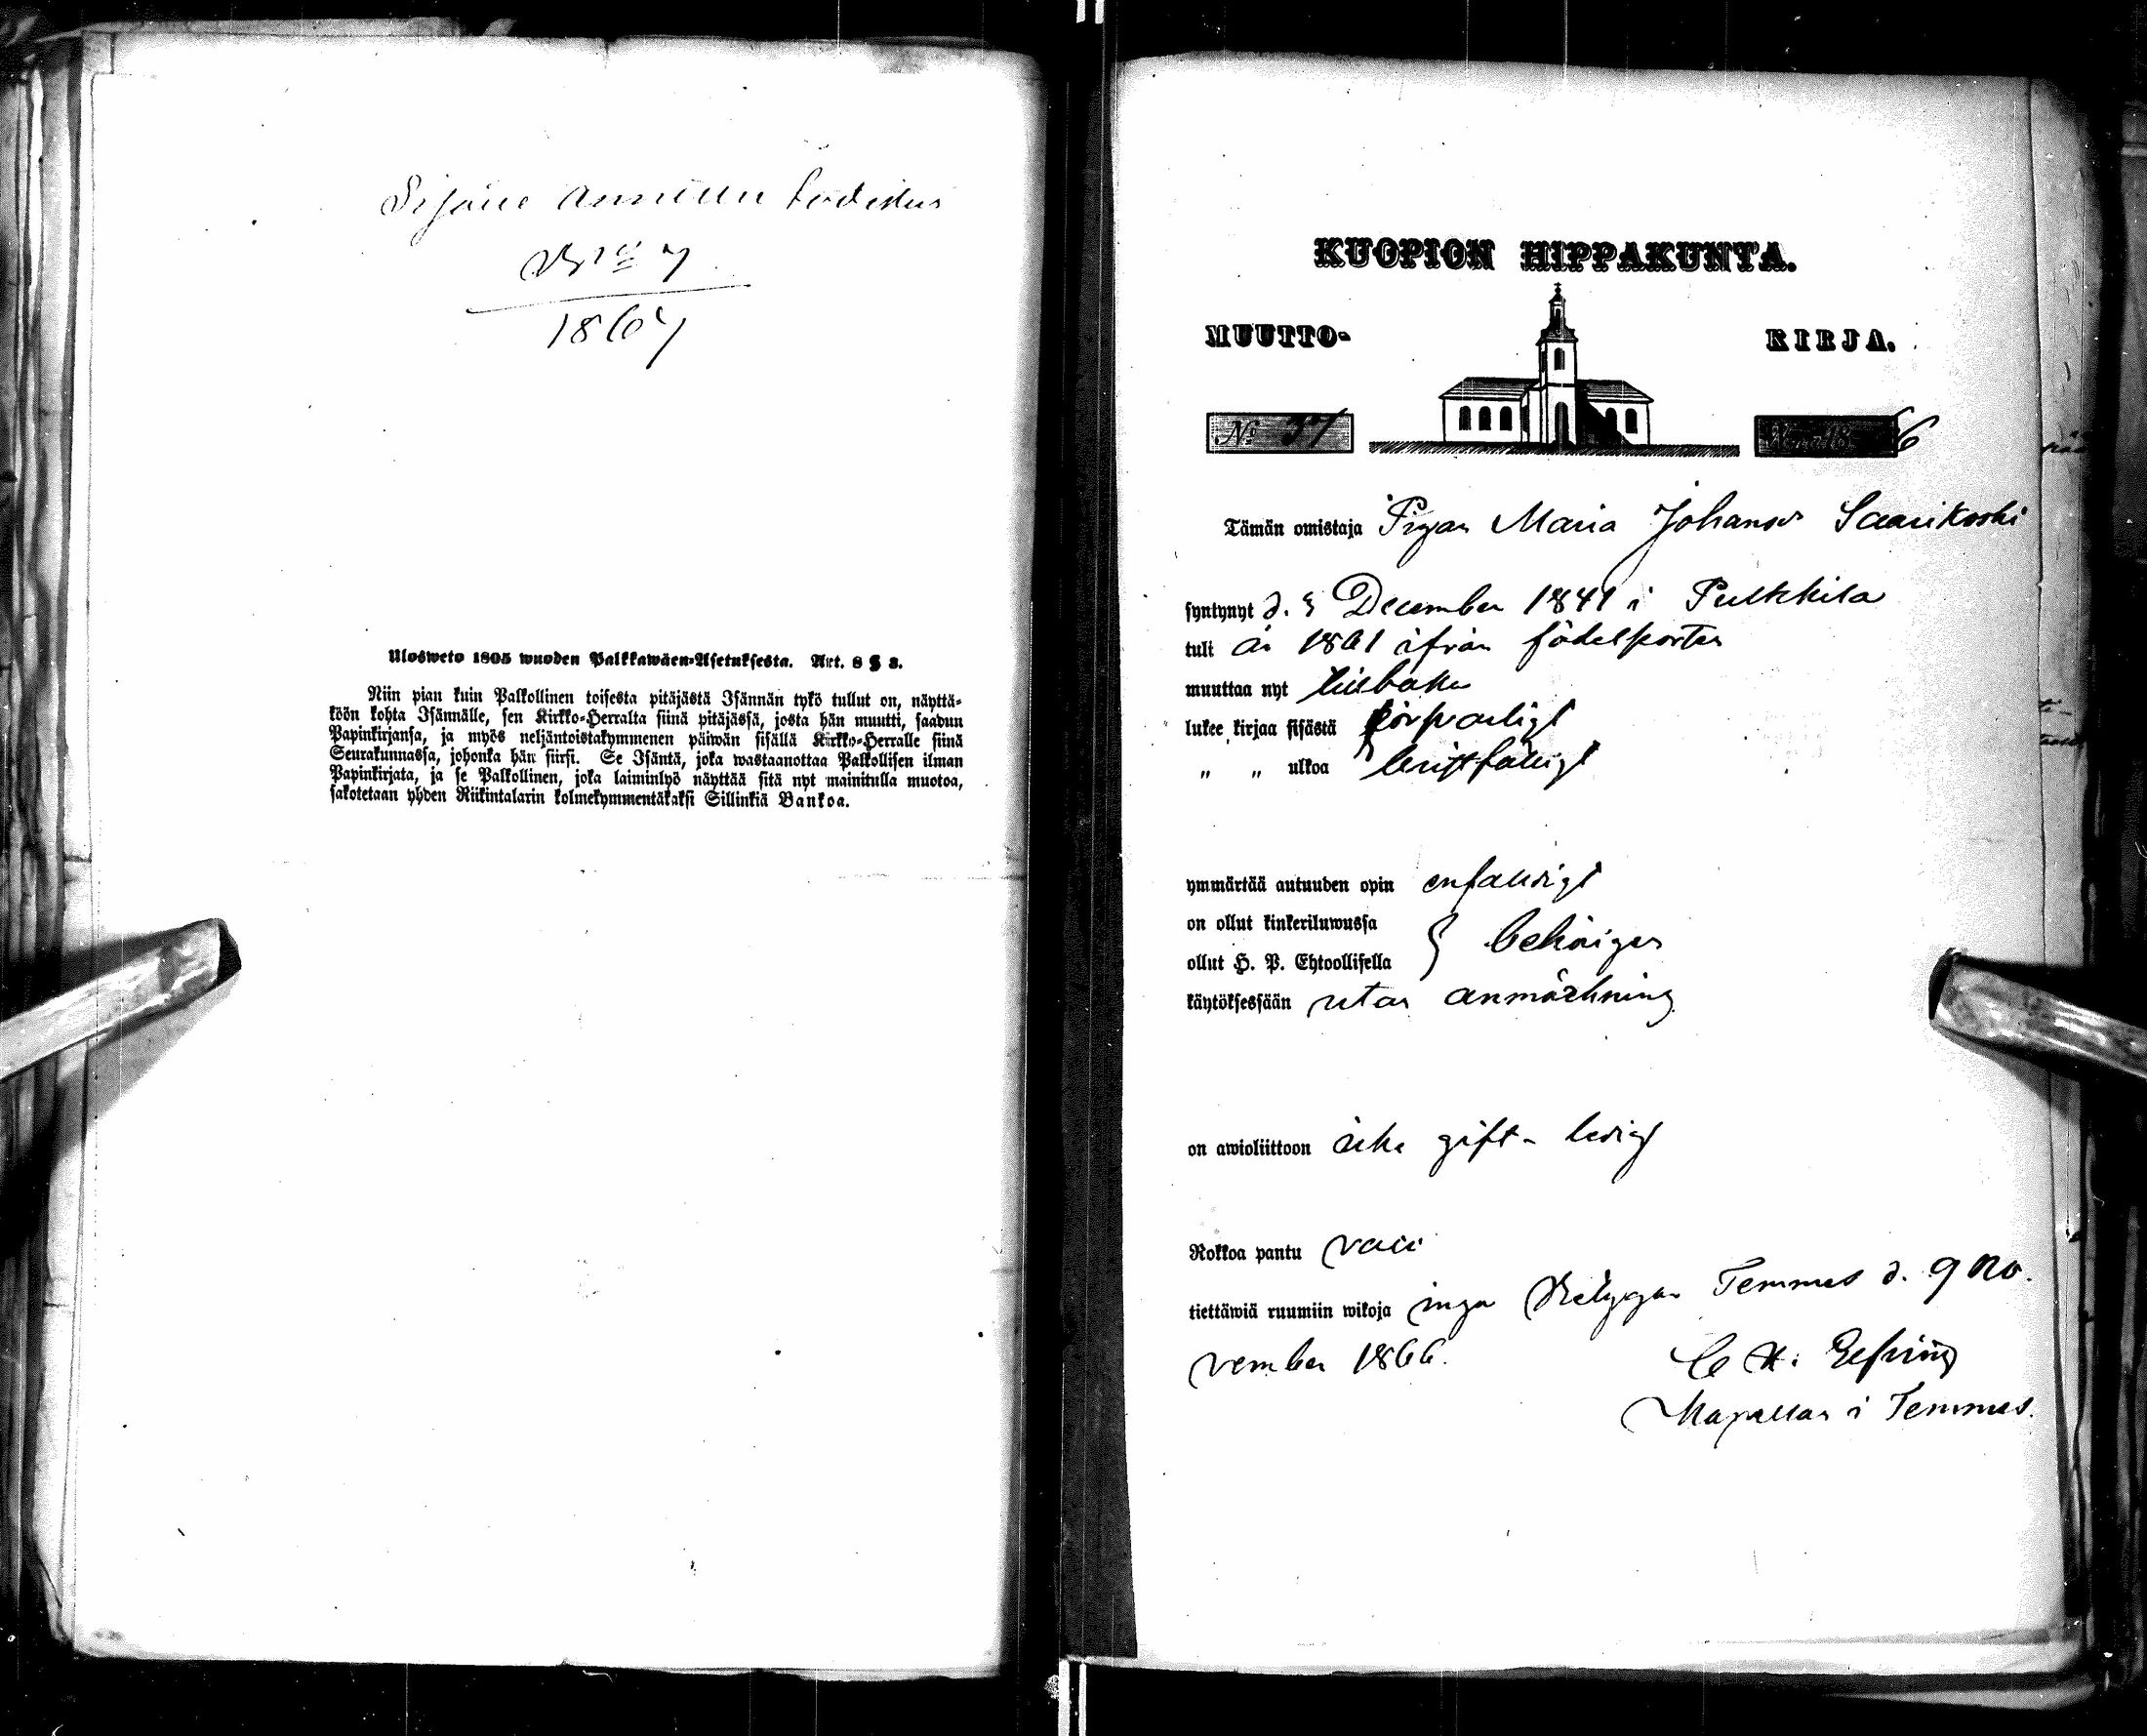 1867
Ulosweto 1805 wuoden Palkkawäen-Asetuksesta. Art. 8 § 3.
Niin pian kuin Palkollinen toisesta pitäjästä Isännän tykö tullut on, näyttä-
köön kohta Isännälle, sen Kirkko-Herralta siinä pitäjässä, josta hän muutti, saadun
Papinkirjansa, ja myös neljäntoistakymmenen päiwän sisällä Kirkko-Herralle siinä
Seurakunnassa, johonka hän siirsi. Se Isäntä, joka wastaanottaa Palkollisen ilman
Papinkirjata, ja se Palkollinen, joka laiminlyö näyttää sitä nyt mainitulla muotoa,
sakotetaan yhden Riikintalarin kolmekymmentäkaksi Sillinkiä Bankoa.
KUOPION HIPPAKUNTA.
MUUTTO- KIRJA.
No 37
Tämän omistaja Pigan Maria Johansdr Saarikoski
syntynyt d. December 1841 i Pulkkila
tuli år 1861 ifrån födelseorten
muuttaa nyt tillbaka
lukee kirjaa sisästä försvarligt
„ „ ulkoa
ymmärtää autuuden opin enfaldigt
on ollut kinkeriluwussa
ollut H. P. Ehtoollisella } behörigen
käytöksessään utan anmärkning
on awioliittoon icke gift - ledig
Rokkoa pantu vacc
tiettäwiä ruumiin wikoja inga Temmes d. 9 No-
vember 1866.
C. H.
Kapellan i Temmes.